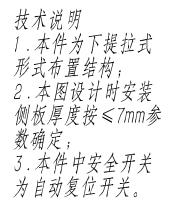 技术说明
1.本件为下提拉式
形式布置结构;
2.本图设计时安装
侧板厚度按≤7mm参
数确定;
3.本件中安全开关
为自动复位开关。